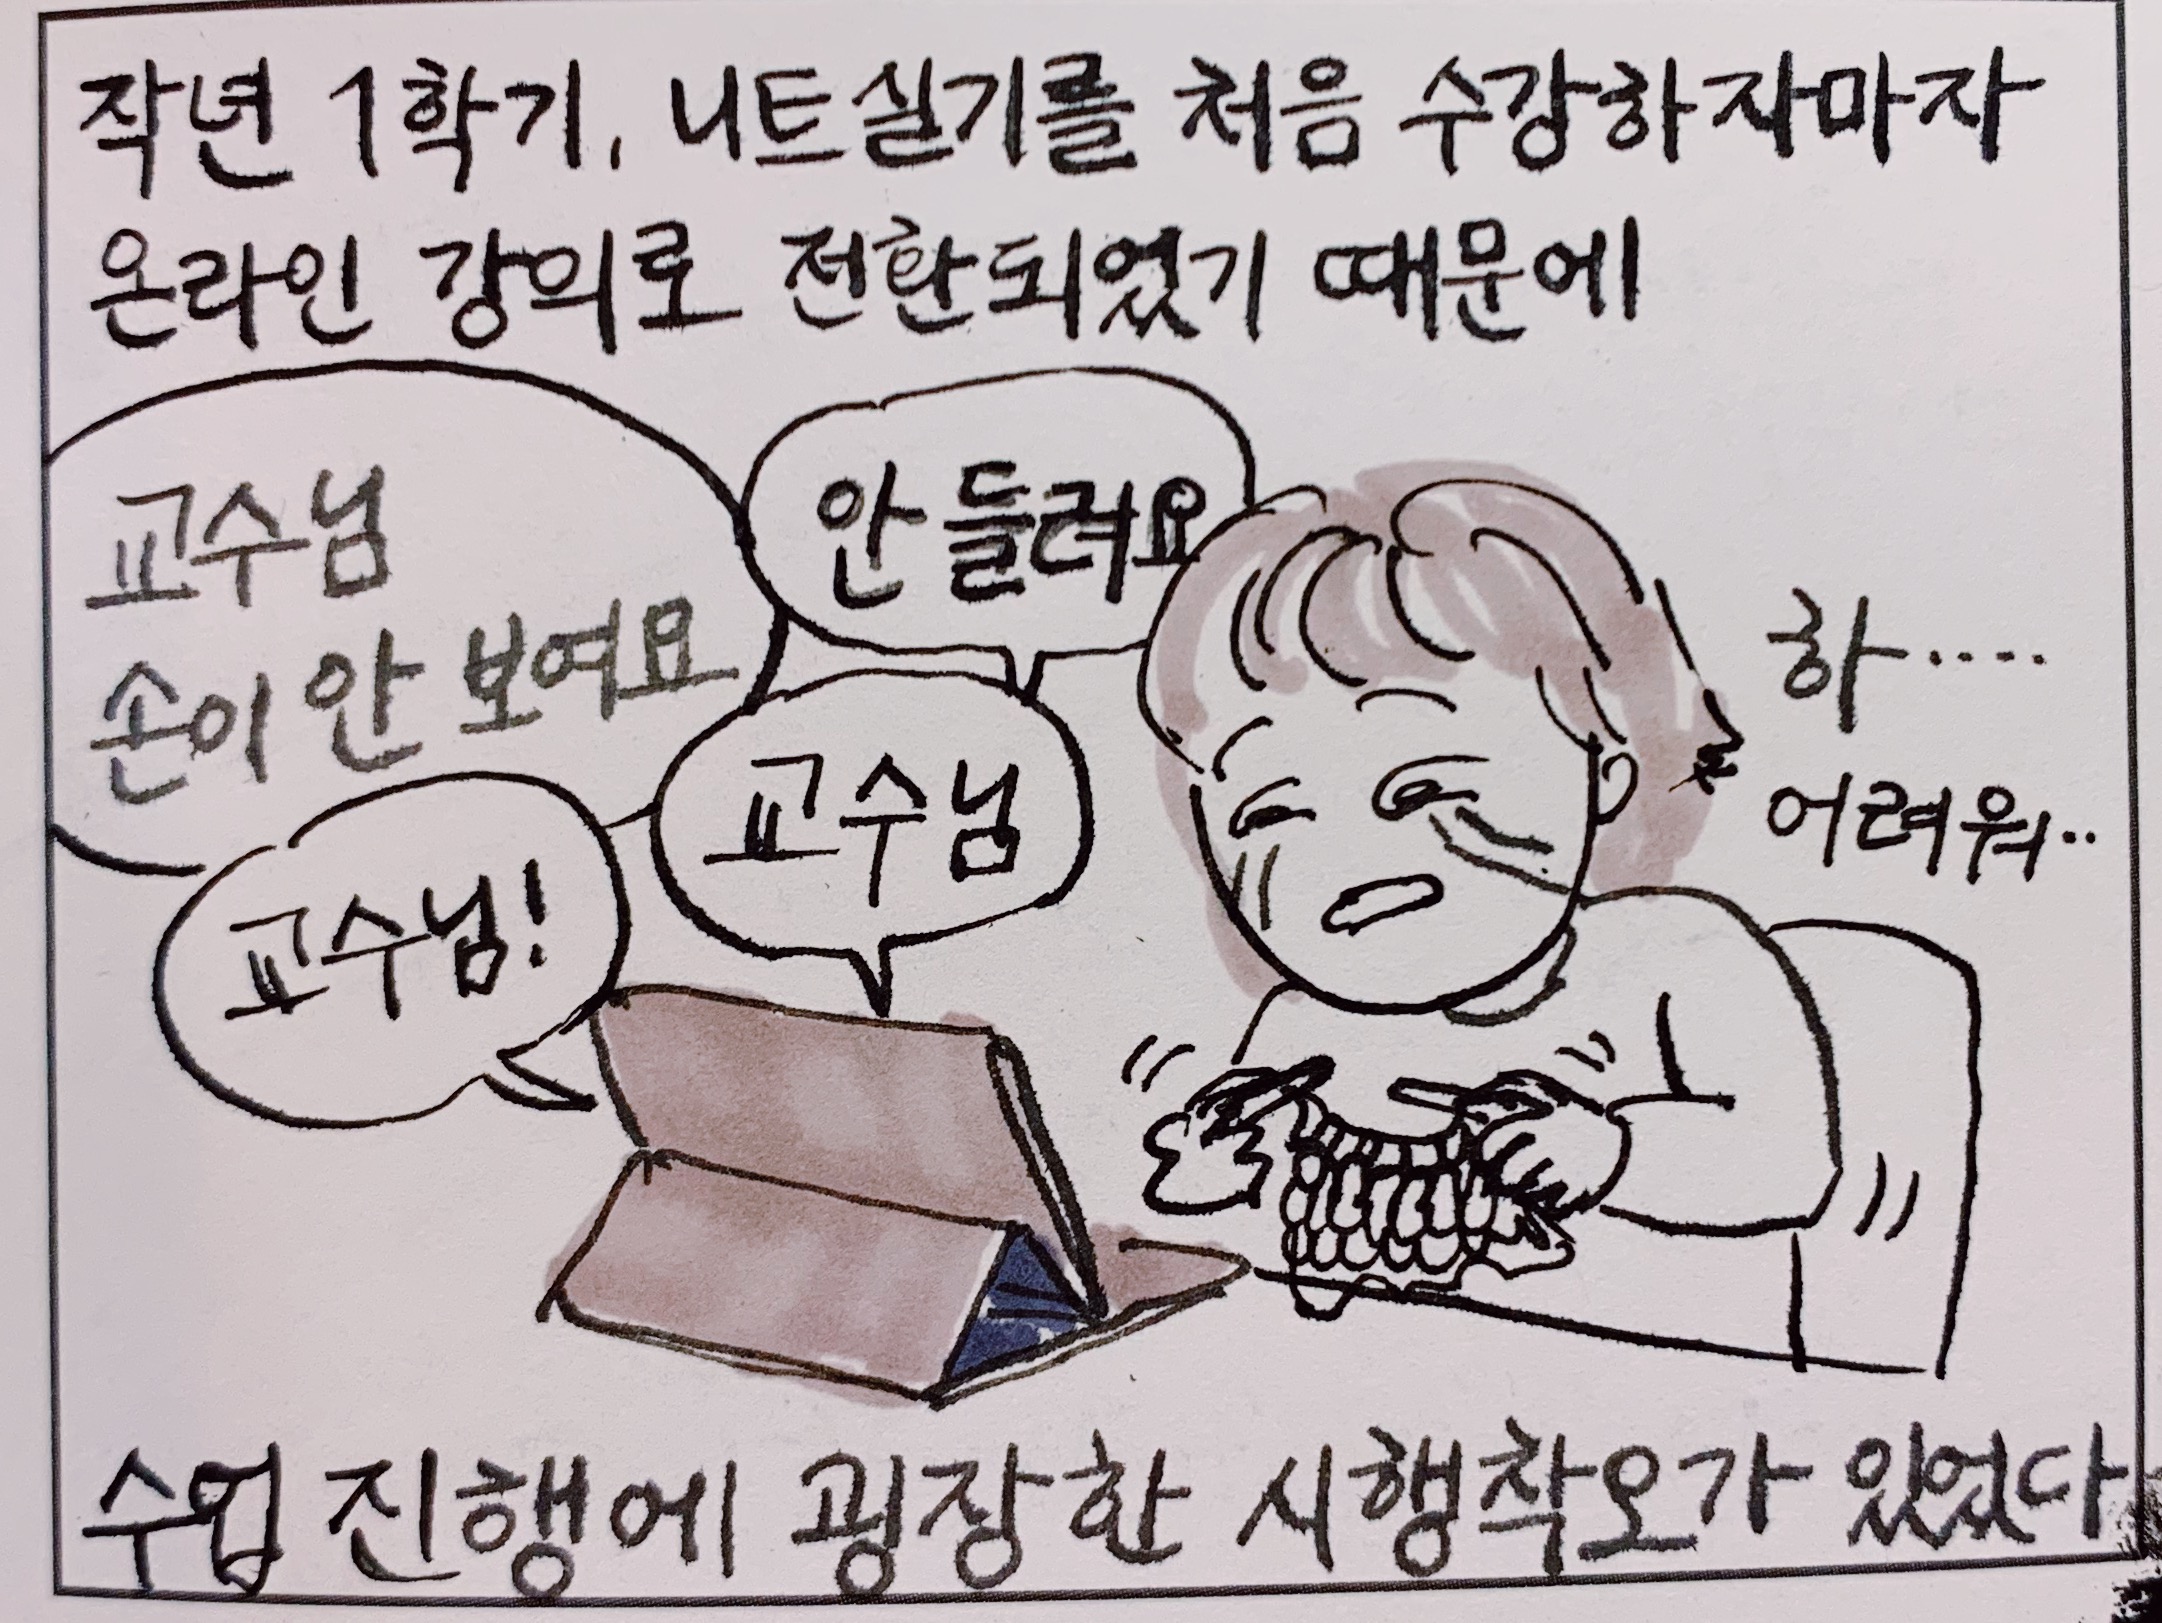 작년 1학기, 니트실기를 처음 수강하자마자
온라인 강의로 전환되었기 때문에
교수님
손이 안 보여요
안 들려요
교수님
교수님!
하....
어려워..
수업 진행에 굉장한 시행착오가 있었다